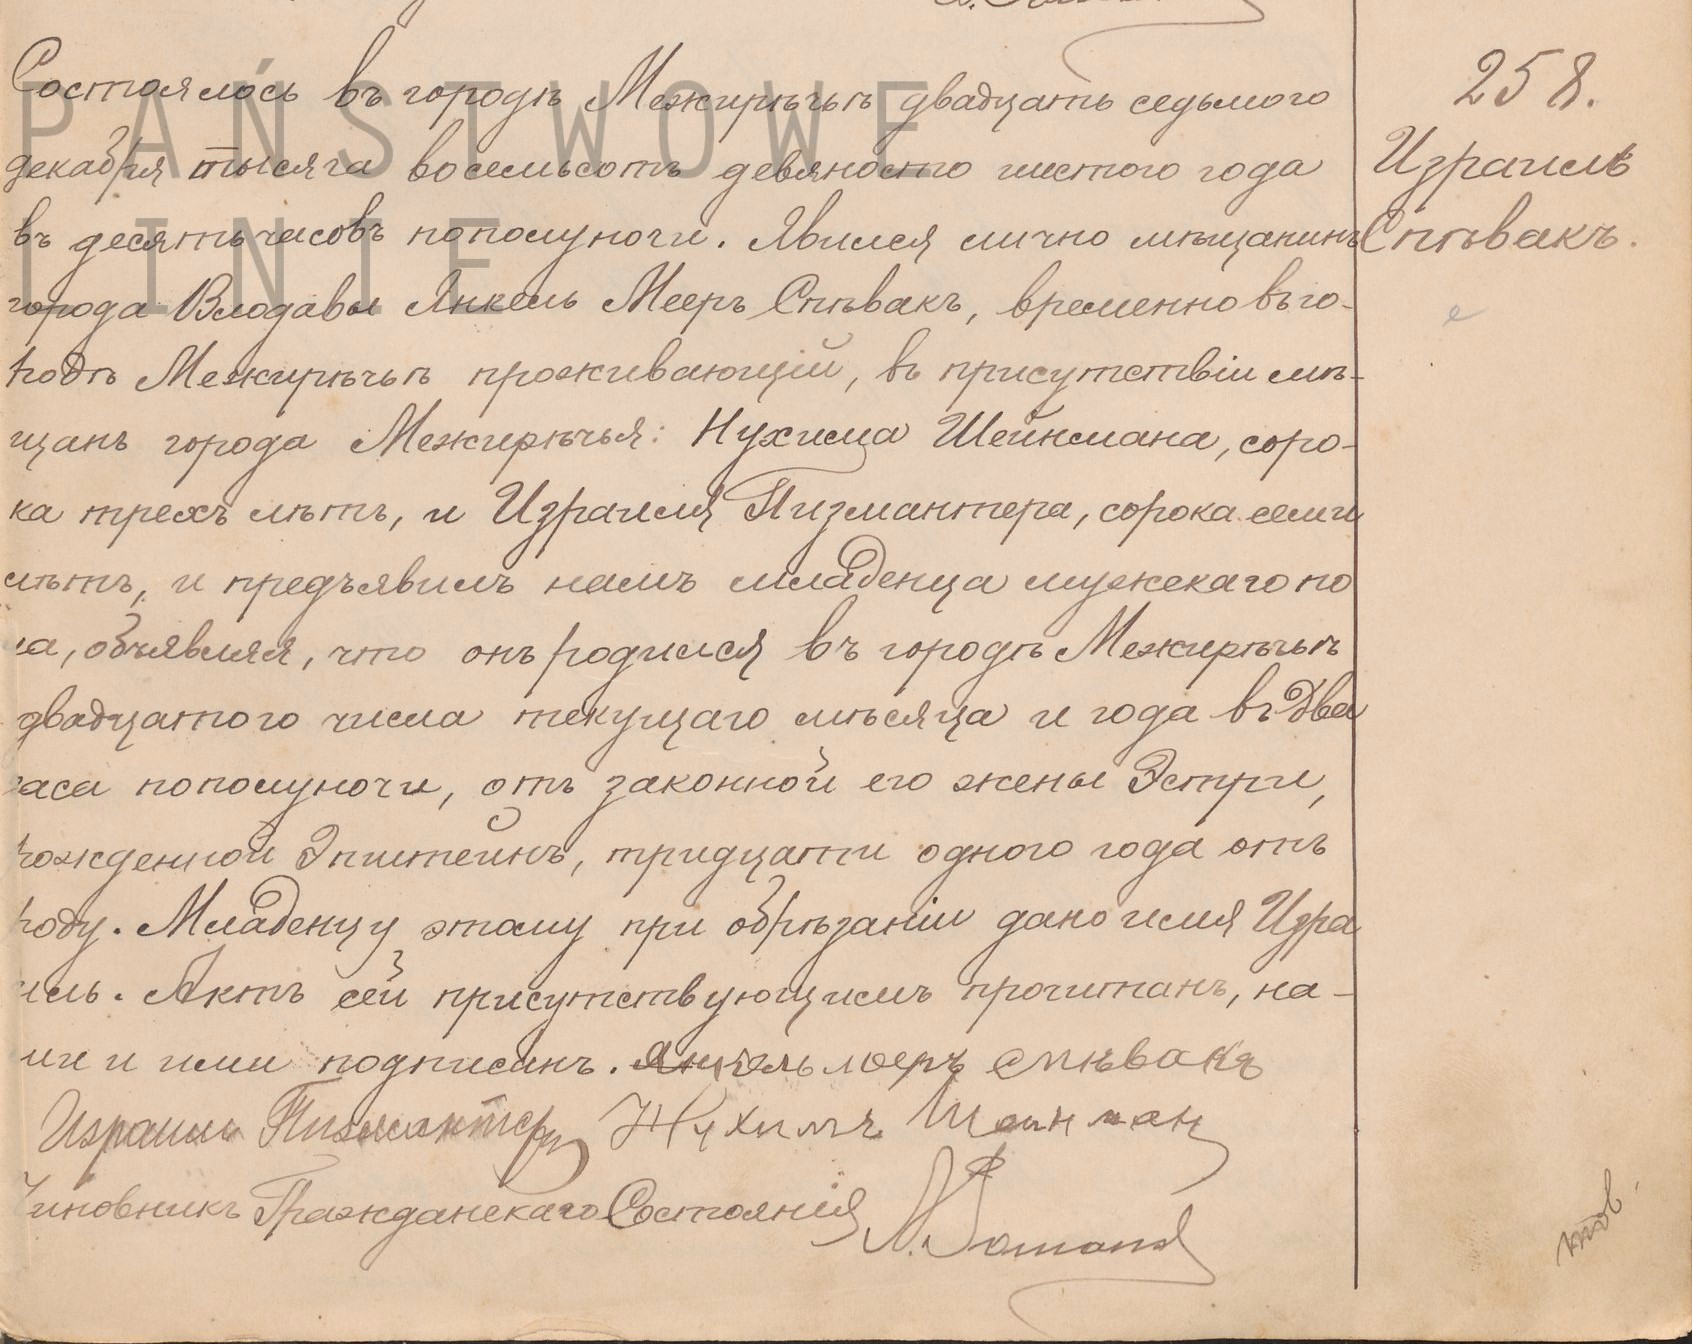 258.
Израиль
Спѣвакъ.
Состоялось въ городѣ Межирѣчьѣ двадцать седьмого
декабря тысяча восемьсотъ девяносто шестого года
въ десять часовъ пополуночи. Явился лично мѣщанинъ
города Влодавы Янкель Мееръ Спѣвакъ, временно въ го-
родѣ Межирѣчьѣ проживающій, въ присутствіи мѣ-
щанъ города Межирѣчья: Нухима Шейнмана, соро-
ка трехъ лѣтъ, и Израиля Пизмантера, сорока семи
лѣтъ, и предъявилъ намъ младенца мужскаго по
ла, объявляя, что онъ родился въ городѣ Межирѣчьѣ
двадцатого числа текущаго мѣсяца и года въ два
часа пополуночи, отъ законной его жены Эстри,
рожденной Эпштейнъ, тридцати одного года отъ
роду. Младенцу этому при обрѣзаніи дано имя Изра
иль. Актъ сей присутствующимъ прочитанъ, на-
ми и ими подписанъ. Янкель Мееръ Спѣвакъ
Израиль Пизмантеръ Нухимъ Шейнман
Чиновникъ Гражданскаго Состоянія
PAŃSTWOWE